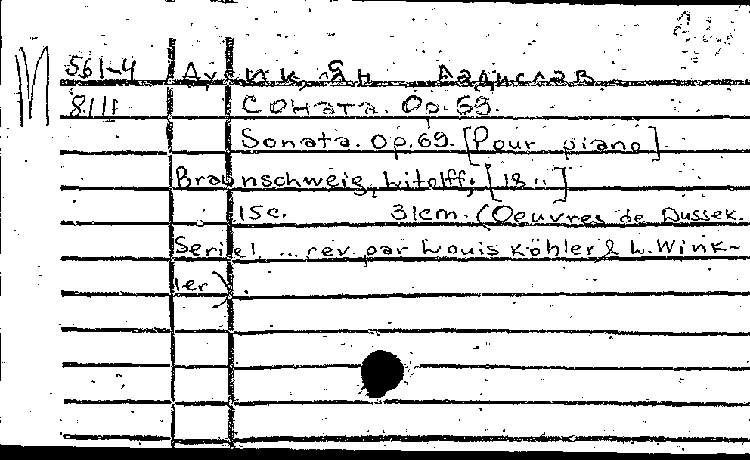 М 561-4 Дусик, Ян Ладислав
8111 Соната. Op. 69.
Sonata. Op. 69. [Pour piano]
Braunschweig, Litolff, [18..]
15c. 31cm. (Oeuvres de Dussek.
Serie 1 ... rev. par Louis Köhler & L. Wink-
ler).